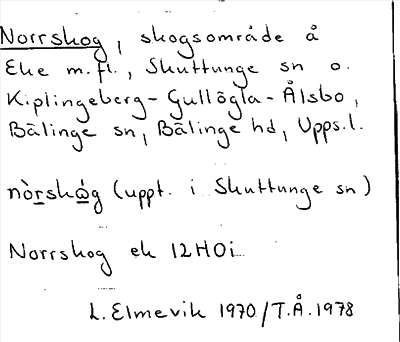 Norrskog, skogsområde å
Eke m.fl., Skuttunge sn o.
Kiplingeberg-Gullögla-Ålsbo,
Bälinge sn, Bälinge hd, Upps.l.
nòrskώg (uppt. i Skuttunge sn)
Norrskog ek 12H0i
L. Elmevik 1970/T.Å.1978